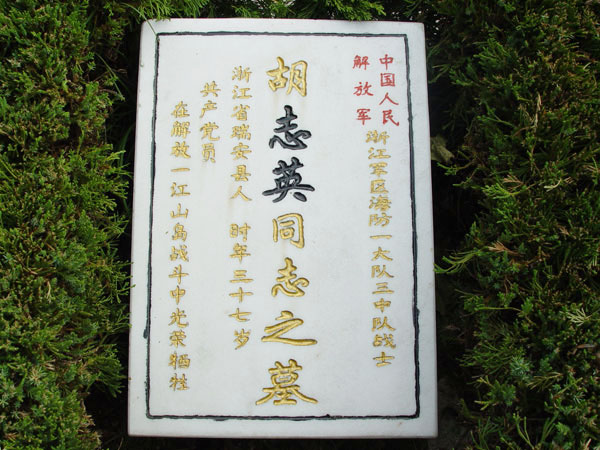 中国人民
解放军
浙江军区海防一大队三中队战士
胡志英同志之墓
浙江省瑞安县人 时年三十七岁
共产党员
在解放一江山岛战斗中光荣牺牲